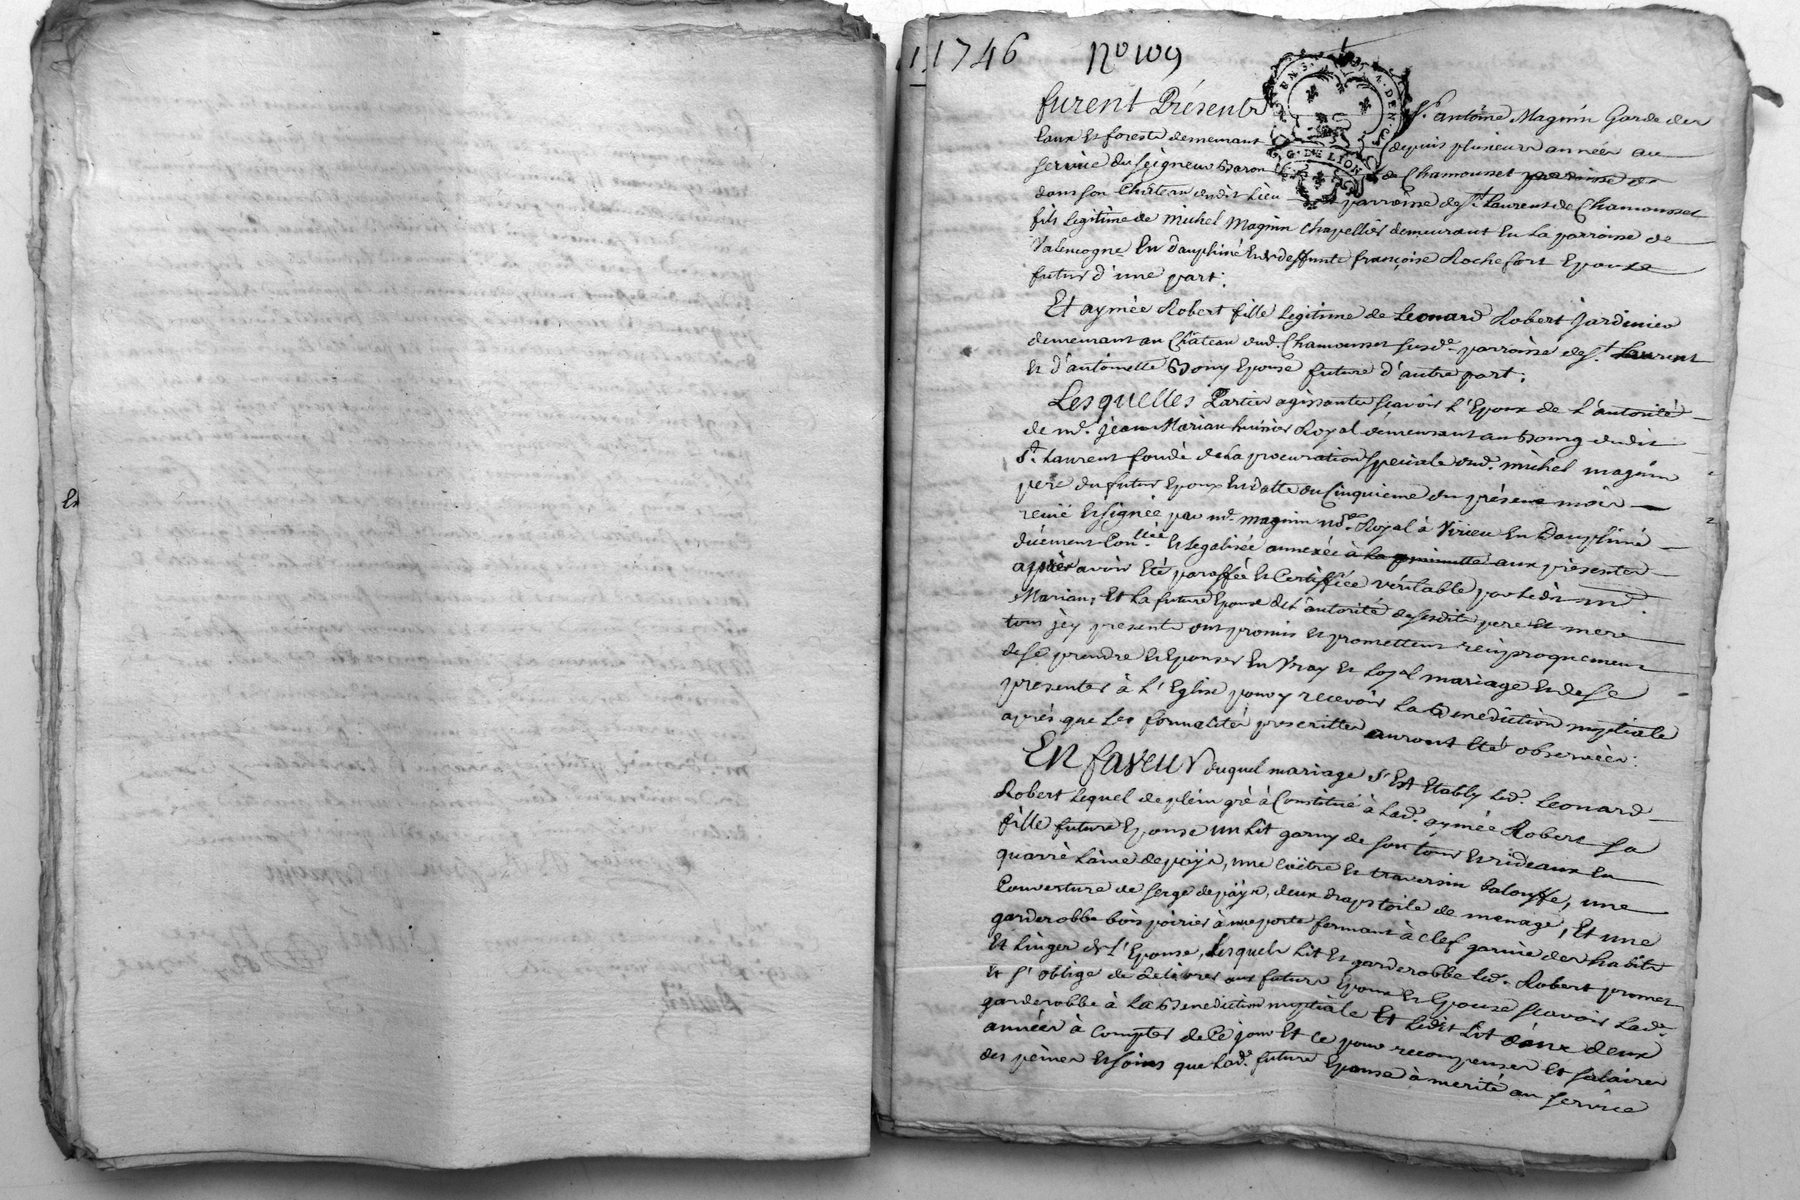 1746 No 109
furent Présents Sr. antoine Magnin Garde des
Eaux Et forests demeurant depuis plusieurs années au
service du seigneur Baron de Chamousset
dans son Château audit Lieu parroisse de St. Laurent de Chamousset
fils legitime de Michel Magnin Chapellier demeurant En La parroisse de
Valencogne En Dauphiné Et de deffunte françoise Rochefort Epoux
futur d'une part;
Et aymée Robert fille legitime de Leonard Robert Jardinier
demeurant au Château dud. Chamousset susde. parroisse de St. Laurent
Et d'antoinette Bony Epouse future d'autre part;
Lesquelles Parties agissantes scavoir L'Epoux de L'autorité
de Me. jean Marian huissier Royal demeurant au Bourg dudit
St. Laurent fondé de La procuration speciale dud. michel magnin
pere du futur Epoux En datte du Cinquieme du présent mois
reçüe Et signée par Me. magnin nore. Royal à Virieu En Dauphiné
düement Conllée Et Legalisée annexée à La minutte aux présentes
après avoir Eté paraffée Et Certiffiée véritable par Ledit Me.
Marian, Et La future Epouse de L'autorité desesdits pere Et mere
tous jcy presents ont promis Et promettent réciproquement
de se prendre Et Epouser En Vray Et Loyal mariage Et de se
presenter à L'Eglise pour y recevoir La Benediction nuptiale
après que Les formalités prescrittes auront Eté observées:
En faveur duquel mariage s'Est Etably Led. Leonard
Robert Lequel de plein gré à Constitué à Lad. aymée Robert sa
fille future Epouse un Lit garny de son tour Et rideaux En
quarré Laine de païs, une Coëtre Et traversin balouffe, une
Couverture de serge de païs, deux draps toile de menage, Et une
garderobbe bois poirier à une porte fermant à clef garnie des habits
Et Linges de L'Epouse, Lesquels Lit Et garderobbe Led. Robert promet
Et s'oblige de delivrer aux futurs Epoux Et Epouse scavoir Lade.
garderobbe à La Benediction nuptiale Et Ledit Lit dans deux
années à compter de Ce jour Et Ce pour recompenser Et salaires
des peines Et soins que Lade. future Epouse à merité au service